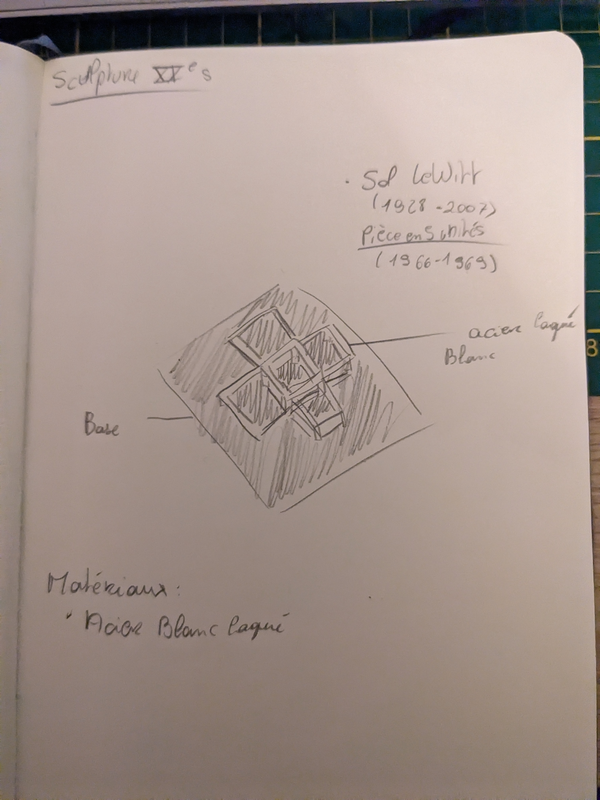 Sculpture XXe s
· Sol LeWitt
(1928-2007)
Pièce en 5 unités
(1966-1969)
acier laqué
Blanc
Base
Matériaux:
· Acier Blanc laqué
8